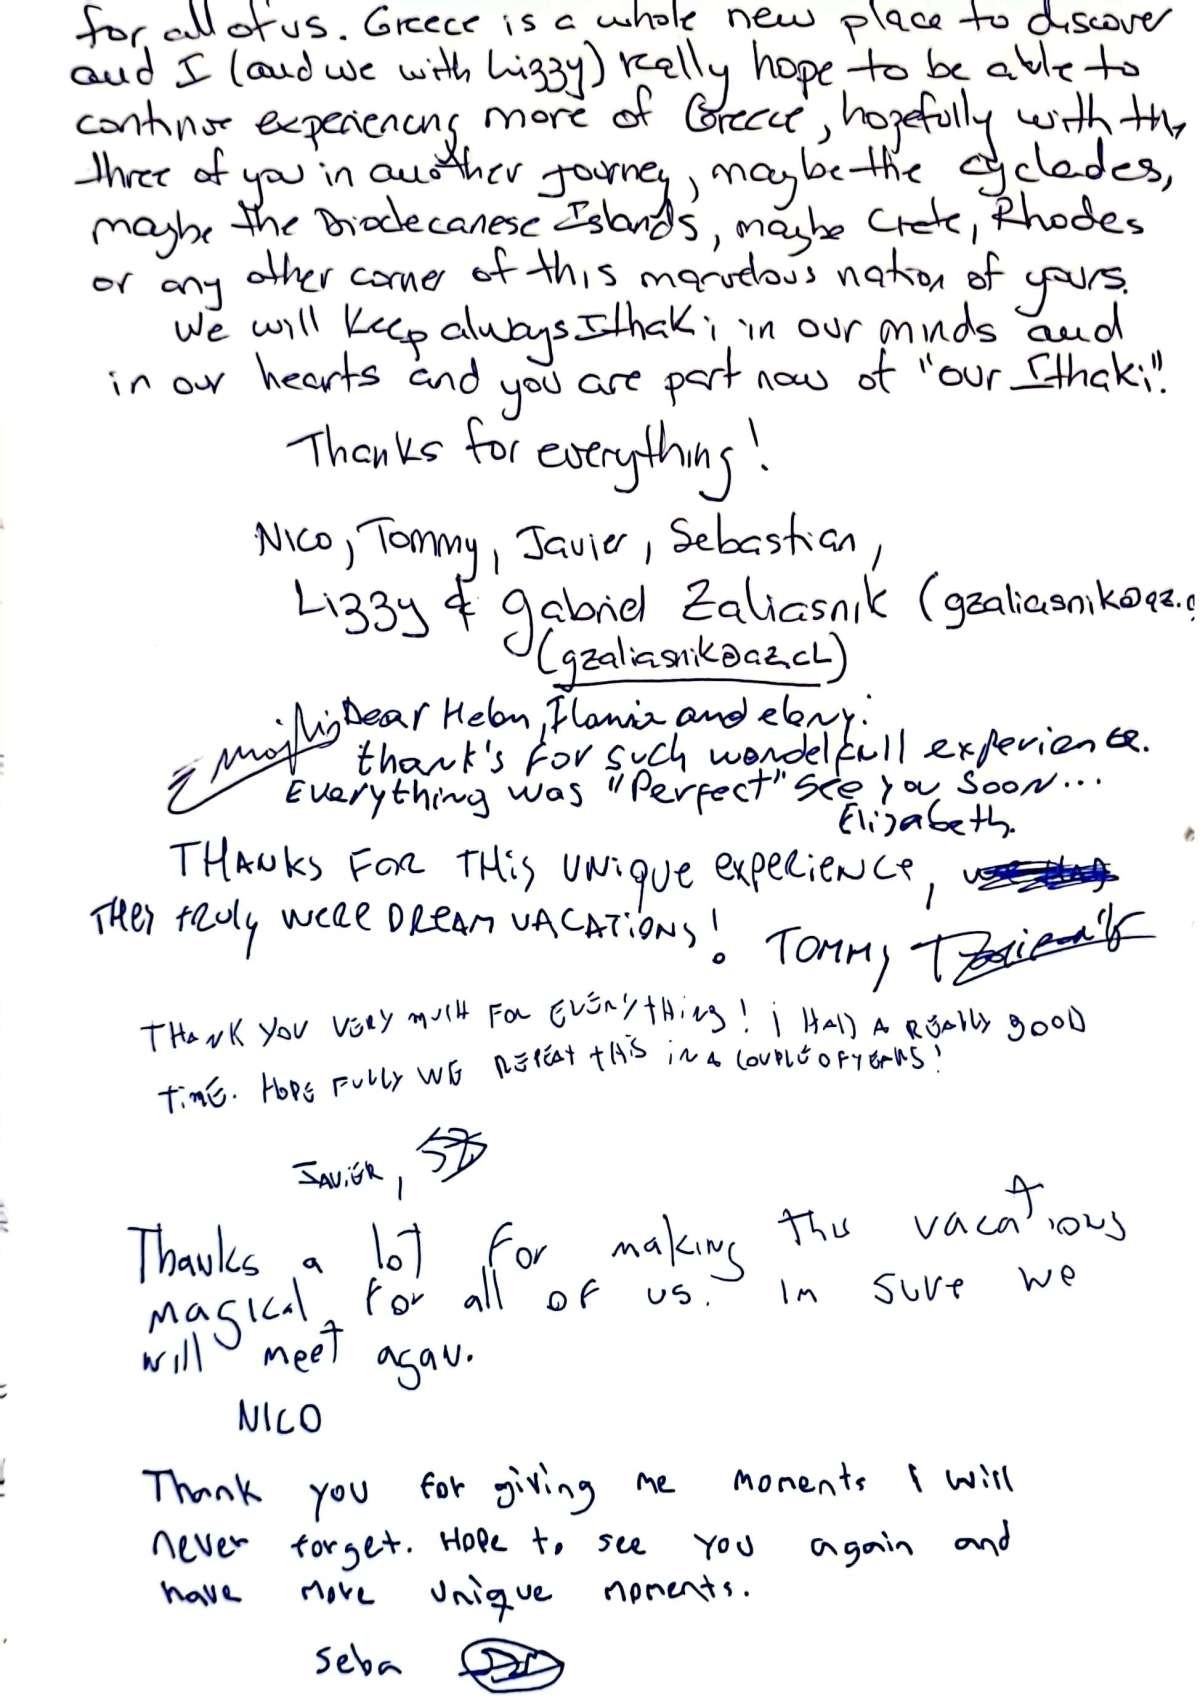 for all of us. Greece is a whole new place to discover
and I (and we with Lizzy) really hope to be able to
continue experiencing more of Greece, hopefully with the
three of you in another journey, maybe the cyclades,
maybe the Diodecanese Islands, maybe Crete, Rhodes
or any other corner of this marvelous nation of yours.
We will keep always Ithaki in our minds and
in our hearts and you are part now of "our Ithaki".
Thanks for everything!
Nico, Tommy, Javier, Sebastian,
Lizzy & gabriel Zaliasnik (gzaliasnik@az.c
(gzaliasnik@az.cL)
Dear Helen, Ilania and ebny:
thank's For such wondelfull experience.
Everything was "Perfect" See you Soon...
Elizabeth.
THANKS FOR THis UNique experience,
They truly were DREAM VACATiONs! TOMMy
THANK YOU VERY MUCH FOR EVERYTHING! i HAD A REALLY gOOD
TiME. HOPE FULLY WE REPEAT THIS iN A COUPLE OF YEARS!
JAViER,
Thanks a loT For making this vacaTions
magical for all of us. Im sure we
will meeT again.
NICO
Thank you for giving me moments I will
never forget. Hope to see you again and
have more unique moments.
Seba